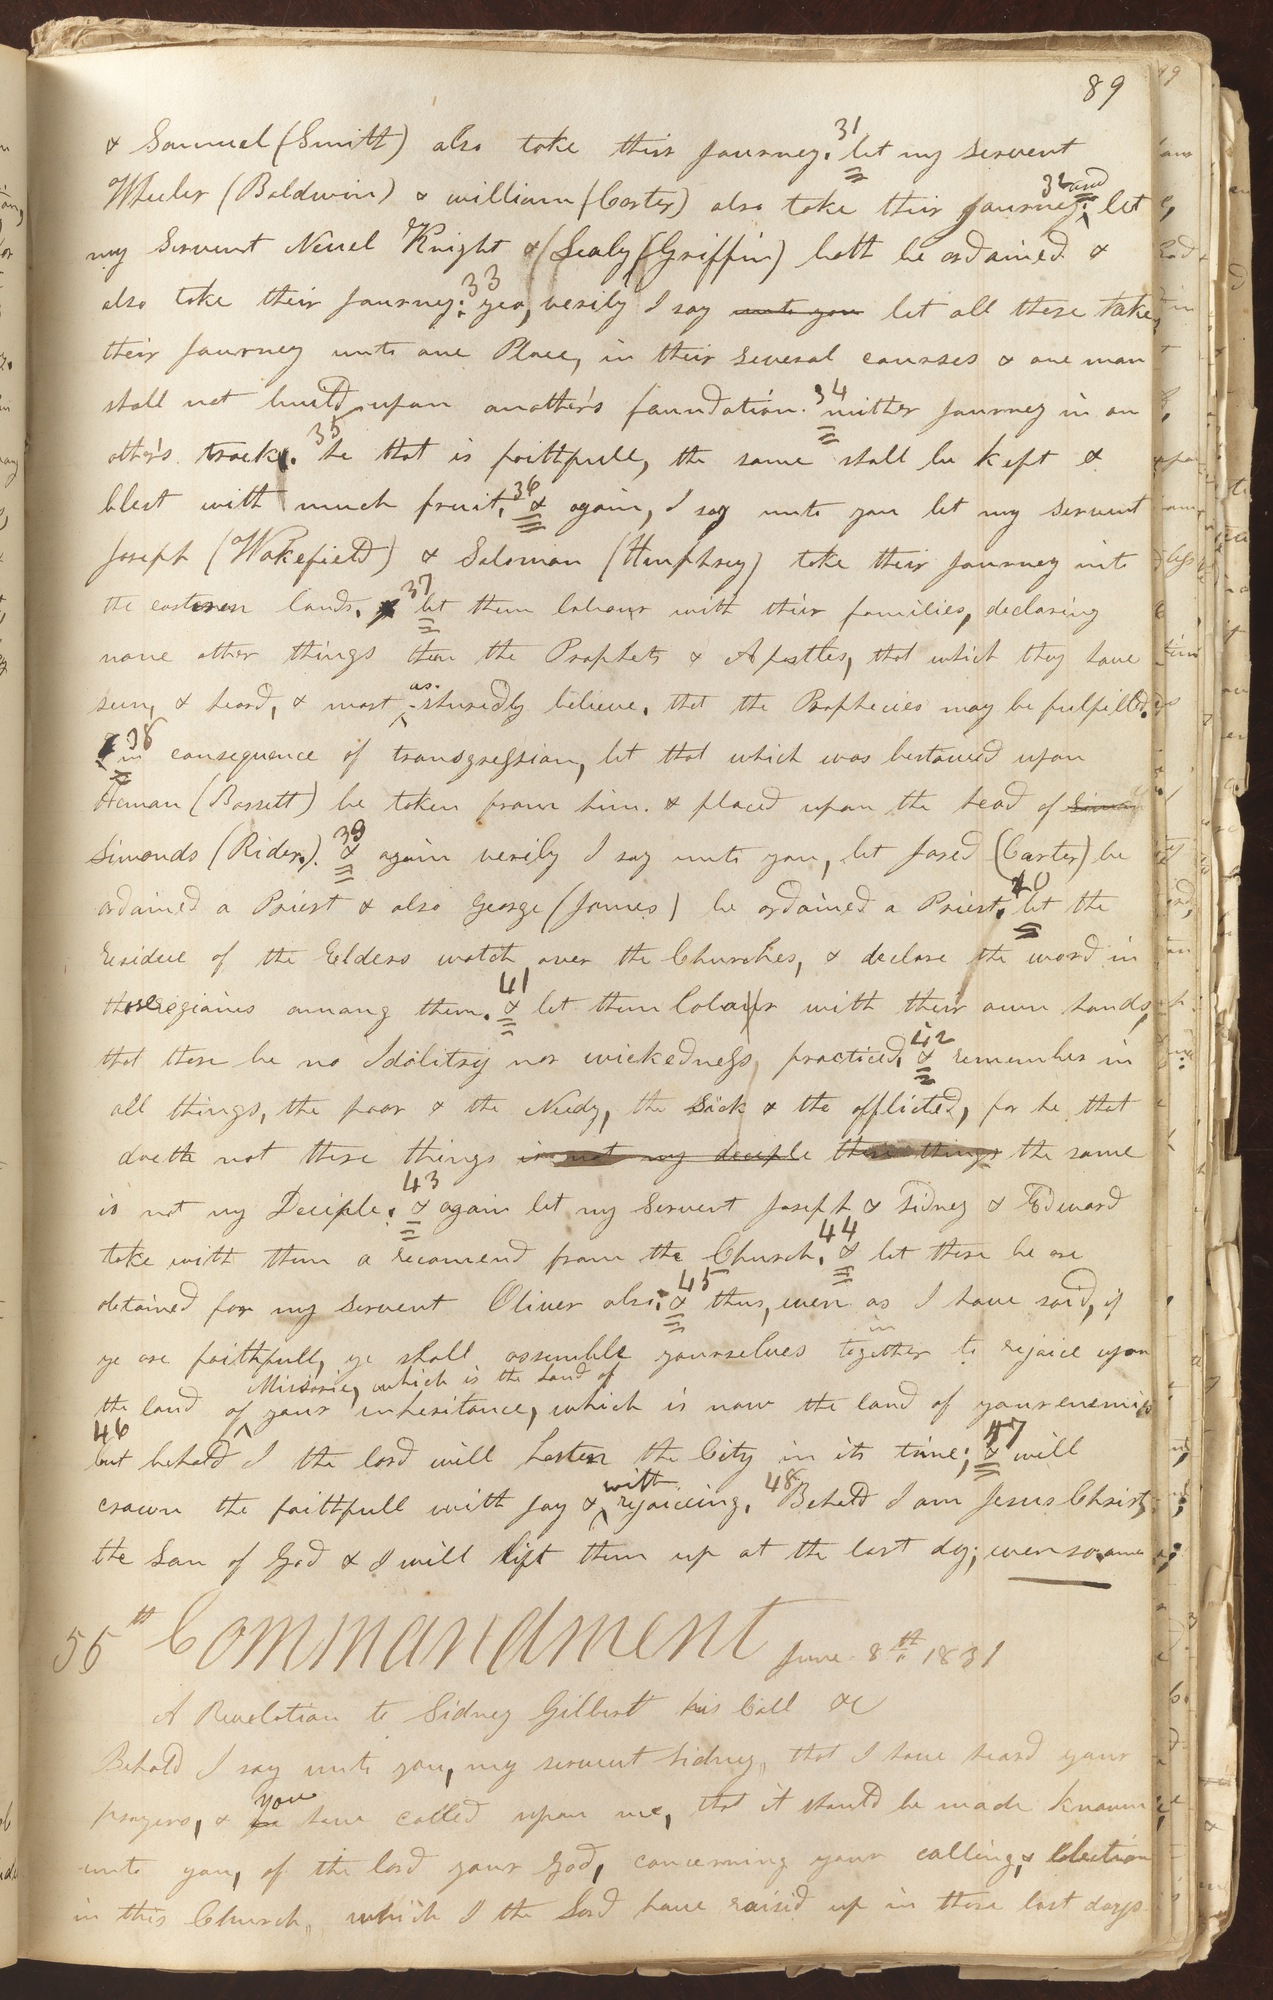 89
& Samuel (Smith) also take their Journey. 31 let my servent
Wheeler (Baldwin) & william (Carter) also take their Journey. 32 and let
my Servent Newel Knight & (Sealy (Griffin) both be ordained &
also take their Journey. 33 yea, verily I say unto you let all these take
their Journey unto one Place, in their several courses & one man
shall not build upon another's foundation. 34 neither Journey in an
other's track. 35 he that is faithfull, the same shall be kept &
blest with much fruit. 36 & again, I say unto you let my servent
Joseph (Wakefield) & Soloman (Humphrey) take their Journey into
the eastern lands. 37 let them labour with their families, declaring
none other things than the Prophets & Apostles, that which they have
seen, & heard, & most
as.
shuredly believe, that the Prophecies may be fulfilled.
38 in consequence of transgression, let that which was bestowed upon
Heman (Bassett) be taken from him. & placed upon the head of
Simonds (Rider.). 39 & again verily I say unto you, let Jared (Carter) be
ordained a Priest & also George (James) be ordained a Priest. 40 let the
residue of the Elders watch over the Churches, & declare the word in
those regions among them. 41 & let them labour with their own hands,
that there be no Idolitry nor wickedness practiced. 42 & remember in
all things, the poor & the Needy, the Sick & the afflicted, for he that
doeth not these things is not my deciple these things the same
is not my Deciple. 43 & again let my Servent Joseph & Sidney & Edward
take with them a recomend from the Church. 44 & let there be one
obtained for my servent Oliver also. 45 & thus, even as I have said, if
ye are faithfull, ye shall assemble yourselves together
in
to rejoice upon
Missorie, which is the Land of
the land of your inheritance, which is now the land of your enemies
46 but behold I the lord will hasten the City in its time; 47 & will
crown the faithfull with Joy &
with
rejoiceing. 48 Behold I am Jesus Christ,
the Son of God & I will lift them up at the last day; even so. amen
56th Commandment June 8th. 1831
A Revelation to Sidney Gilbert his Call &c
Behold I say unto you, my servent Sidney, that I have heard your
prayers, & ye
you
have called upon me, that it should be made known
unto you, of the lord your God, concerning your calling, & election
in this Church, which I the Lord have raised up in these last days